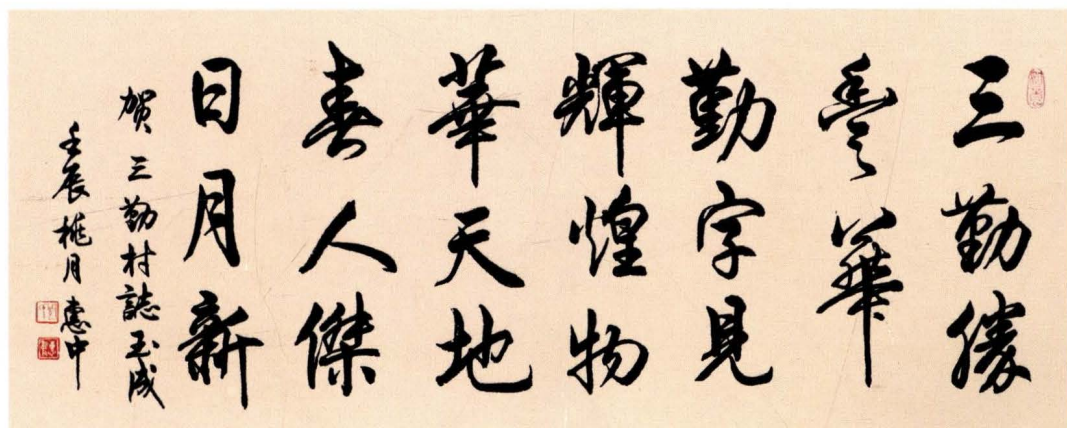 三勤勝
華
勤字見
輝煌物
華天地
春人傑
日月新
贺三勤村誌玉成
壬辰桃月惠中